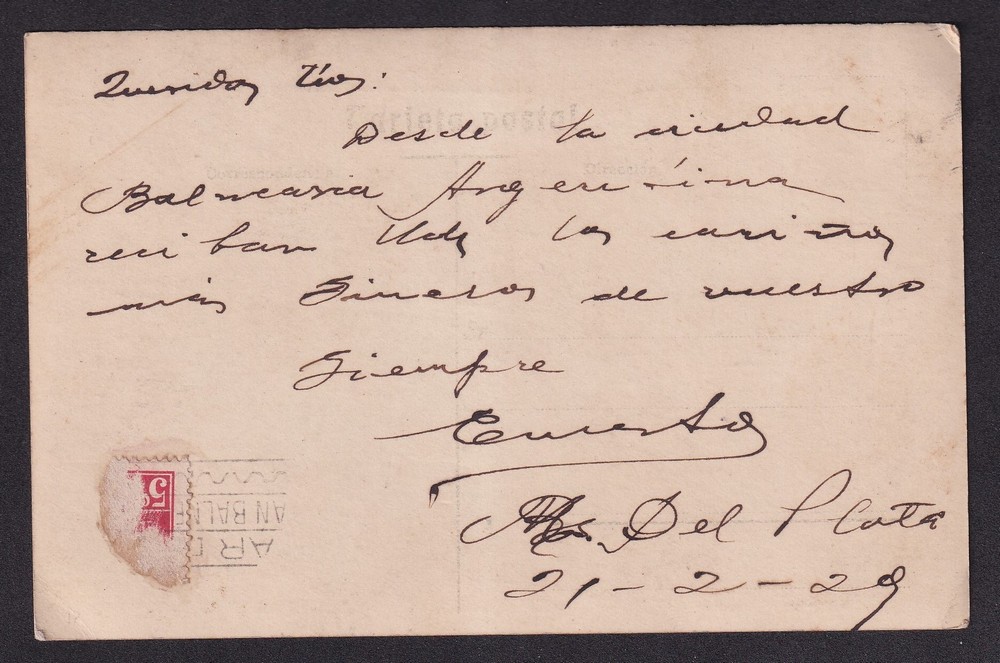 Queridos tíos:
Tarjeta postal
Desde la ciudad
Correspondencia
Dirección
Balnearia Argentina
reciban Uds los cariños
más sinceros de vuestro
siempre
Ernesto
5
AN BALN
Del Plata
21-2-29